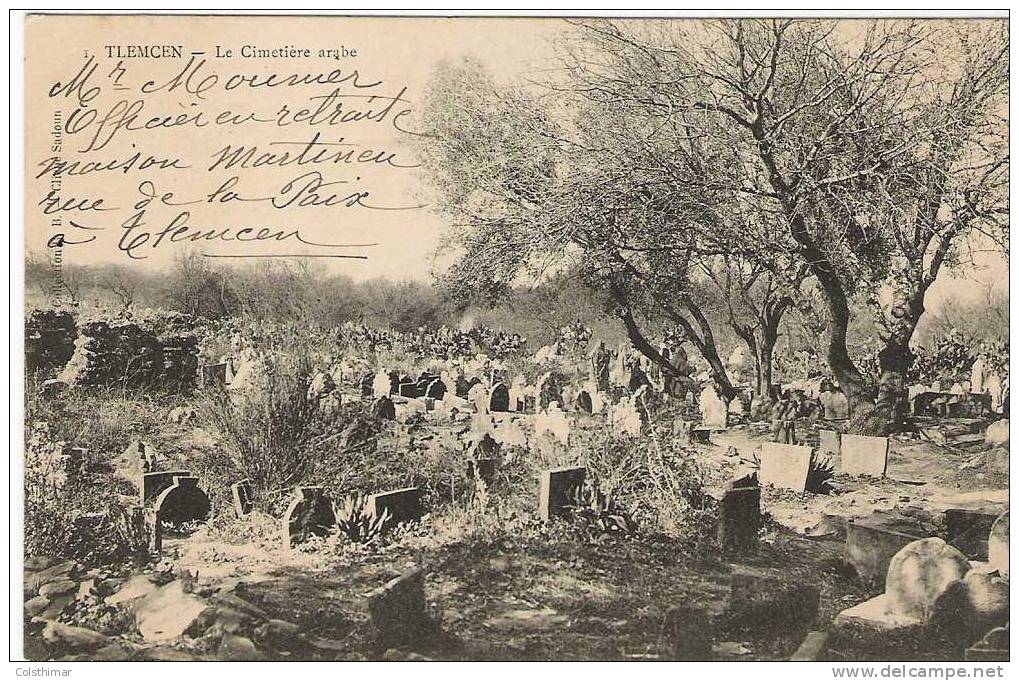 1. TLEMCEN – Le Cimetière arabe
Mr Mounier
Officier en retraite
maison Martineu
rue de la Paix
à Tlemcen
Collection B. Sadoun
Costhimar
www.delcampe.net